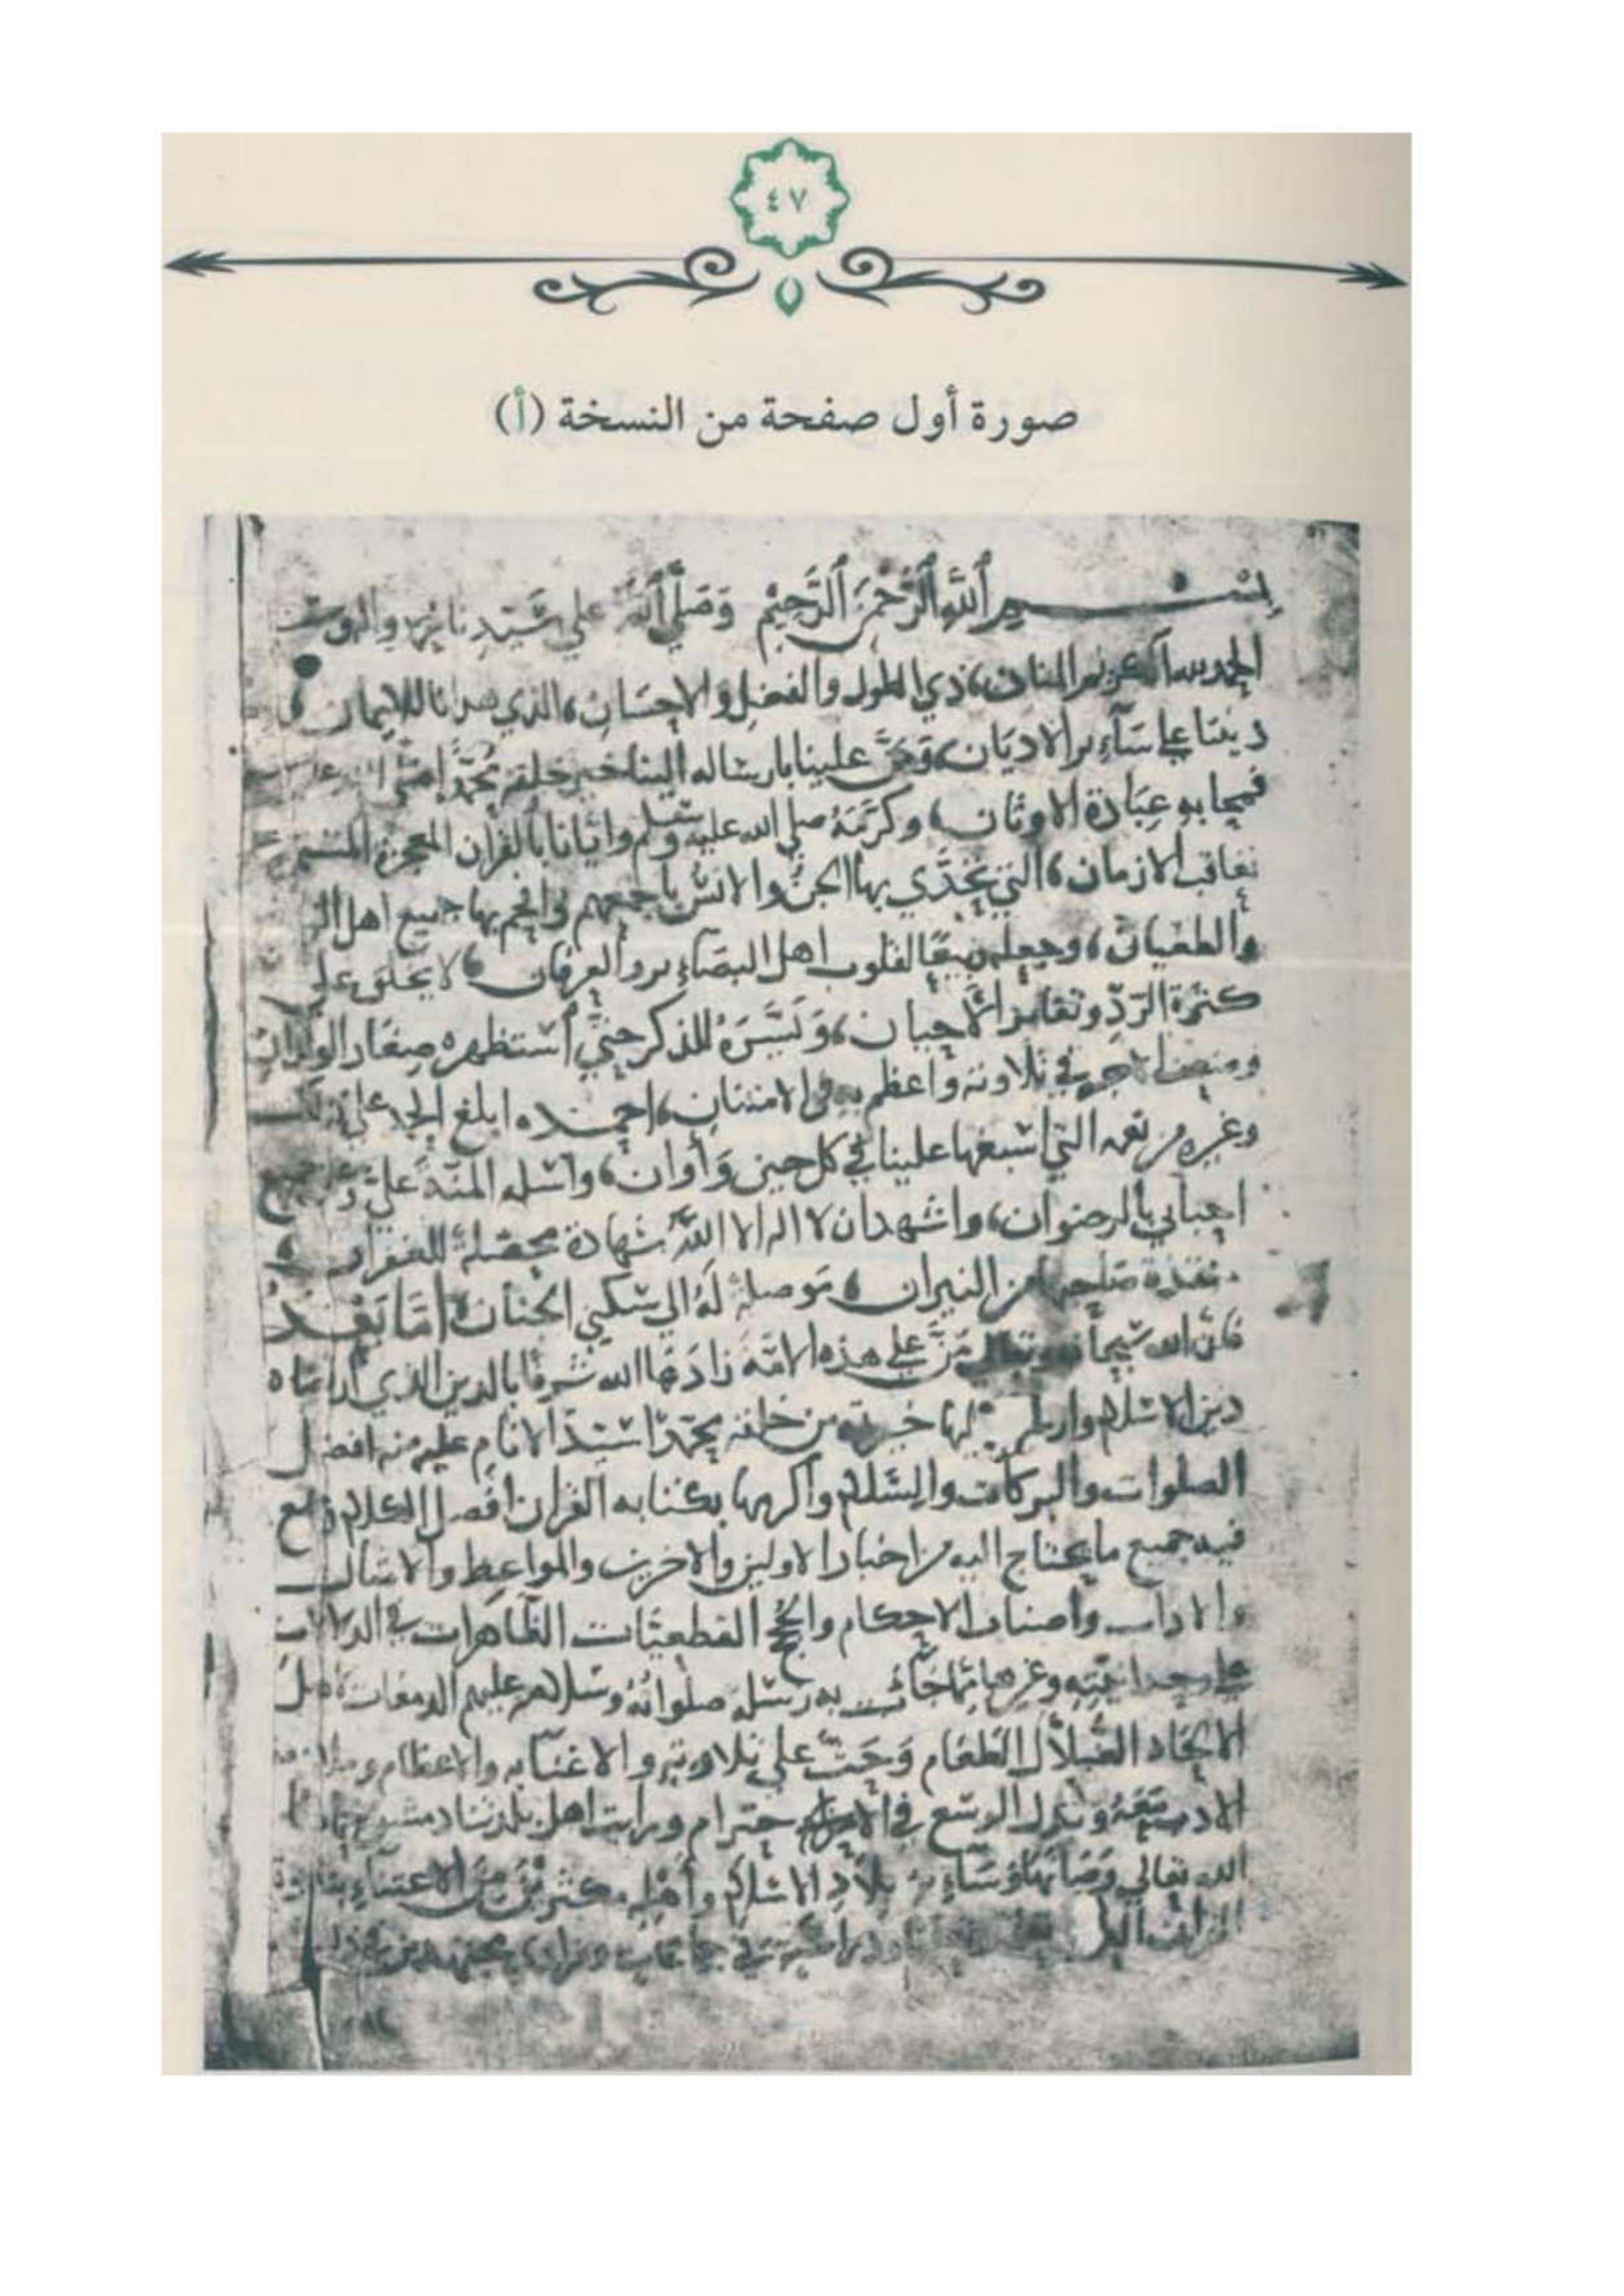 ٤٧
صورة أول صفحة من النسخة (أ)
بسم الله الرحمن الرحيم وصلى الله على سيدنا محمد واله
الحمد لله الكريم المنان، ذي الطول والفضل والاحسان، الذي هدانا للايمان
ديننا على سآئر الاديان، ومَنَّ علينا بارساله الينا خير خلقه محمدا
فمحا به عبادة الاوثان، وكرمه صلى الله عليه وسلم واتانا بالقران المعجزة المستمرة
تعاقب الازمان، التي تحدي بها الجن والانس باجمعهم وافحم بها جميع اهل
والطغيان، وجعله ربيعا لقلوب اهل البصآئر والعرفان، لا يخلق على
كثرة الردّ وتغاير الاحيان، ويسره للذكر حتى استظهره صغار الولدان
في تلاوته واعظم به الامتنان، احمده ابلغ الحمد على ذلك
وغيره من نعمه التي اسبغها علينا في كل حين وأوان، واسله المنة عليّ وعلى جميع
احبابي بالرضوان، واشهد ان لا اله الا الله شهادة محصلة للغفران
منقذة صاحبها من النيران، موصلة له الى سكنى الجنان، امّا بعد
فان الله سبحانه وتعالى مَنَّ على هذه الامّة زادها الله شرفا بالدين الذي ارتضاه
دين الاسلام وارسل اليها خيرته من خلقه محمدا سيد الانام عليه منه افضل
الصلوات والبركات والسلام واكرمها بكتابه القران افضل الكلام وجمع
فيه جميع ما يحتاج اليه من اخبار الاولين والاخرين والمواعظ والامثال
والاداب واصناف الاحكام والحجج القطعيّات الظاهرات في الدلالات
على وحدانيته وغيرها مما جآءت به رسله صلواته وسلامه عليهم الدامغات لاهل
الالحاد الضُلّال الطغام وحث على تلاوته والاعتنآء به والاعظام وملازمة
الادب معه وبذل الوسع في الاحترام ورايت اهل بلدنا دمشق حماها
الله تعالى وصانها وسآئر بلاد الاسلام واهله مكثرين من الاعتنآء بتلاوة
القران